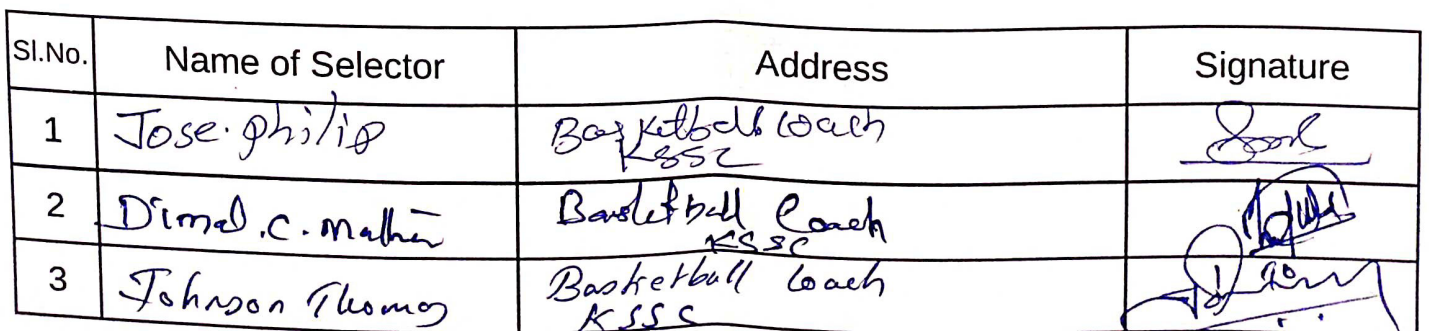 Sl.No. Name of Selector Address Signature
1 Jose. Philip Basketball Coach
KSSC
2 Dimal .C. Mathew Basketball Coach
KSSC
3 Johnson Thomas Basketball Coach
KSSC